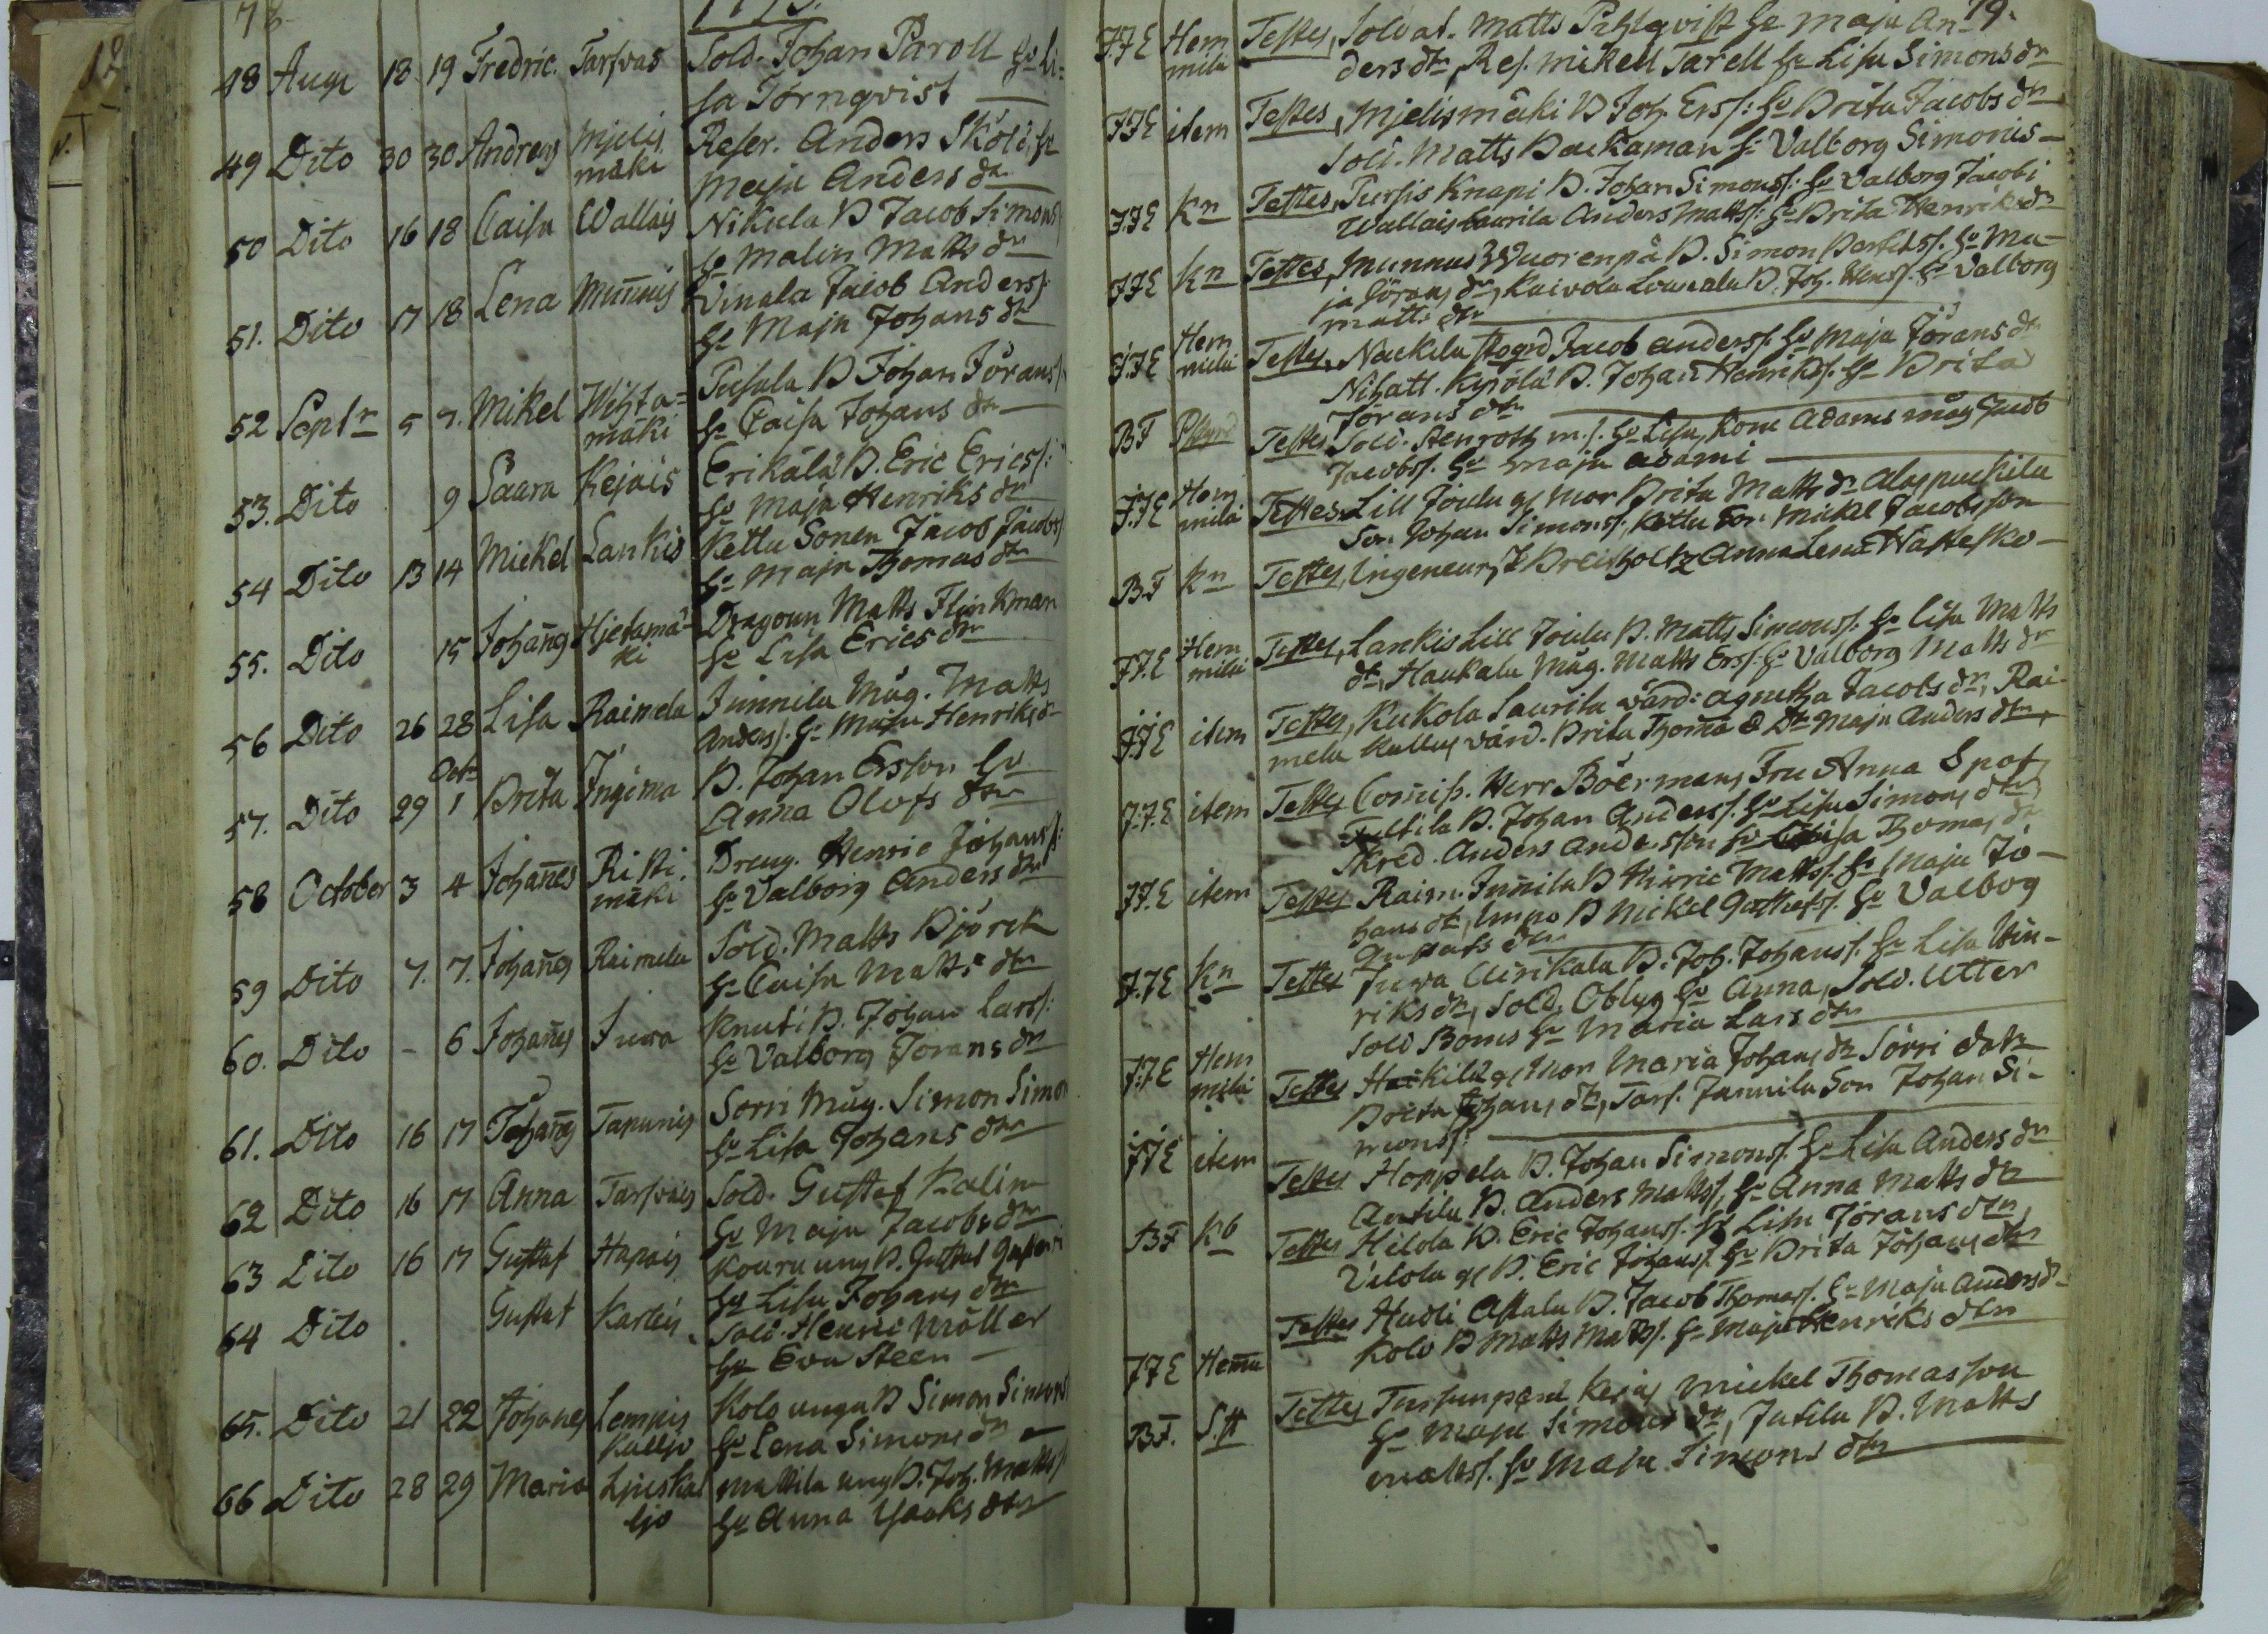 78
48 Aug 18 19 Fredric. Tarsvas Sold. Johan Paroll hu Li=
sa Törnqvist
49 Dito 30 30 Andreas Mjelis Reser. Anders Sköld, hu
mäki Maja Anders dr
50 Dito 16 18 Caisa Wallais Nikula B Jacob Simons
hu Malin Matts dr
51. Dito 17 18 Lena Munnis Vinala Jacob Anderss:
hu Maja Johans dr
52 Septr 5 7. Mikel Wihta= Pusula B Johan Jörans
mäki hu Caisa Johans dr
53. Dito 9 Saara Kejais Erikälä B. Eric Ericss:
hu Maja Henriks dr
54 Dito 13 14 Mickel Lankis Kettu Sonen Jacob Jacobs
hu Maja Thomas dr
55. Dito 15 Johans Hjetamä- Dragoun Matts Flinkman
ki hu Lisa Erics dr
56 Dito 26 28 Lisa Raimela Junnila Måg. Matts
Anderss. hu Maja Henriks dr
Octr
57. Dito 29 1 Brita Ingima B. Johan Ersson hu
Anna Olofs dr
58 October 3 4 Johañes Risti. Dreng. Henric Johanss:
mäki hu Valborg Anders dr
59 Dito 7. 7. Johañes Raimela Sold. Matts Björck
hu Caisa Matts dr
60. Dito - 6 Johañes Juva Knuti B. Johan Larss:
hu Valborg Jörans dr
61. Dito 16 17 Johañs Tapunis Sorri Måg. Simon Simo
hu Lisa Johans dr
62 Dito 16 17 Anna Tarsvais Sold. Gustaf Kalin
hu Maja Jacobs dr
63 Dito 16 17 Gustaf Hapais Kouru ung B. Gustaf
hu Lisa Johans dr
64 Dito Gustaf Karleis Sold. Henric Möller
hu Eva Steen
65. Dito 21 22 Johañes Lempis Kolo unga B Simon Simons
Kalljo hu Lena Simons dr
66 Dito 28 29 Maria Ljuskal Mattila ung B. Joh. Matts
ljo hu Anna Isaks dr
79.
J.F.E Hem Testes, Soldat. Matts Pihlqvist hu Maja An-
mila ders dr, Res. Mikell Tarell hu Lisa Simons dr
J.F.E item Testes, Mjelismäki B Joh. Erss: hu Brita Jacobs dr
Sold. Matts Backaman hu Valborg Simonis
J.F.E Kn Testes, Pursis Knapi B. Johan Simonss: hu Valborg Jacobi
Wallais Laurila Anders Mattss: hu Brita Henriks dr
J.F.E Kn Testes, Munnus Wuorenpä B. Simon hu Ma-
ja Jörans dr, Kaivola B. Joh. hu Valborg
Matts dr
J.F.E Hem Testes, Naukila Jacob Anderss. hu Maja Jörans dr
mila Nihatt. Kyrölä B. Johan Henrikss. hu Brita
Jörans dr
B.F Testes Sold. Stenroth m.f. hu Lisa, Kone Adams måg Jacob
Jacobss. hu Maja Adami
J.F.E Hem Testes Lill Joulu g mor Brita Matts dr
mila Son Johan Simonss, Kettu Son Mickel Jacobsson
B.F Kn Testes, Ingeneur, Anna Lena
J.F.E Hem Testes, Lankis Lill Joulu B. Matts Simonss. hu Lisa Matts
mila dr, Haukala Mag. Matts Erss: hu Valborg Matts dr
J.F.E item Testes, Kukola Laurila värd: Agnetha Jacobs dr, Rai-
mela Kallus värd. Brita Thoma & Dr Maja Anders dr,
J.F.E item Testes Comiss. Herr Böermans Fru Anna Spof
Tultila B. Johan Anderss. hu Lisa Simons dr
Skred. Anders Andersson hu Caisa Thomas dr
J.F.E item Testes Raim. Juñila B Henric Mattss. hu Maja Jo-
hans dr, Umpo B Mickel Gustafss. hu Valbog
Gustafs dr
J.F.E Kn Testes Juva B. Joh. Johanss. hu Lisa Hin-
riks dr, Sold. hu Anna, Sold. Utter
Sold Boms hu Maria Lars dr
J.F.E Hem Testes Heikilä g Mor Maria Johans dr Sorri dotr
mila Brita Johans dr, Tars. Jannila Son Johan Si-
monss:
J.F.E item Testes Hoppela B. Johan Simonss. hu Lisa Anders dr
Antila B. Anders Mattss, hu Anna Matts dr
B.F Kb Testes Hilola B. Eric Johanss. hu Lisa Jörans dr
Vilola g B. Eric Johanss. hu Brita Johans dr
Testes Hudi Astala B. Jacob Thomass. hu Maja Anders dr
Kolo B Matts Mattss. hu Maja Henriks dr
J.F.E Hema
B.F. Testes Kejas Mickel Thomasson
hu Maja Simons dr, Jutila B. Matts
Mattss. hu Maja Simons dr